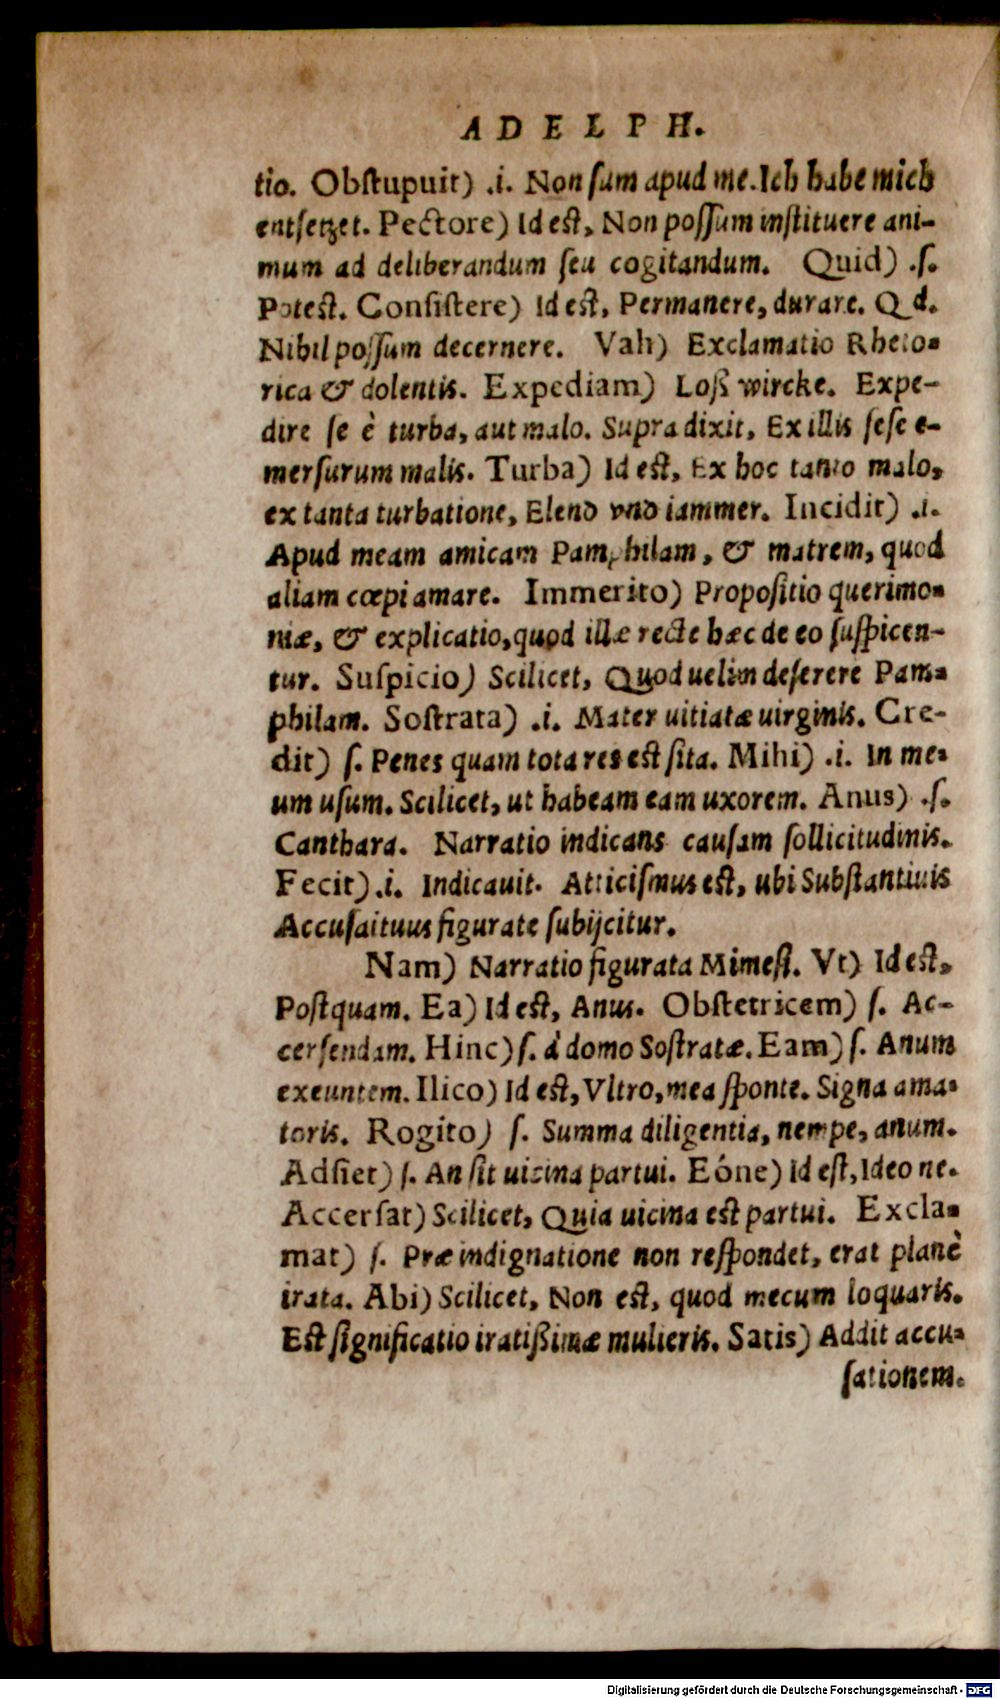 ADELPH.
tio. Obstupuit) .i. Non sum apud me. Ich habe mich
entsetzet. Pectore) Id est, Non possum instituere ani-
mum ad deliberandum seu cogitandum. Quid) .s.
Potest. Consistere) Id est, Permanere, durare. Q d.
Nihil possum decernere. Vah) Exclamatio Rheto-
rica & dolentis. Expediam) Loß wircke. Expe-
dire se è turba, aut malo. Supra dixit, Ex illis sese e-
mersurum malis. Turba) Id est, Ex hoc tanto malo,
ex tanta turbatione, Elend vnd iammer. Incidit) .i.
Apud meam amicam Pamphilam, & matrem, quod
aliam cœpi amare. Immerito) Propositio querimo-
niæ, & explicatio, quod illæ recte hæc de eo suspicen-
tur. Suspicio) Scilicet, Quod uelim deserere Pam-
philam. Sostrata) .i. Mater uitiatæ uirginis. Cre-
dit) s. Penes quam tota res est sita. Mihi) .i. In me-
um usum. Scilicet, ut habeam eam uxorem. Anus) .s.
Canthara. Narratio indicans causam sollicitudinis.
Fecit) .i. Indicauit. Atticismus est, ubi Substantiuis
Accusaituus figurate subijcitur.
Nam) Narratio figurata Mimesi. Vt) Id est,
Postquam. Ea) Id est, Anus. Obstetricem) s. Ac-
cersendam. Hinc) s. à domo Sostratæ. Eam) s. Anum
exeuntem. Ilico) Id est, Vltro, mea sponte. Signa ama-
toris. Rogito) s. Summa diligentia, nempe, anum.
Adsiet) s. An sit uicina partui. Eóne) Id est, Ideo ne.
Accersat) Scilicet, Quia uicina est partui. Excla-
mat) s. Præ indignatione non respondet, erat planè
irata. Abi) Scilicet, Non est, quod mecum loquaris.
Est significatio iratißimæ mulieris. Satis) Addit accu-
sationem.
Digitalisierung gefördert durch die Deutsche Forschungsgemeinschaft - DFG